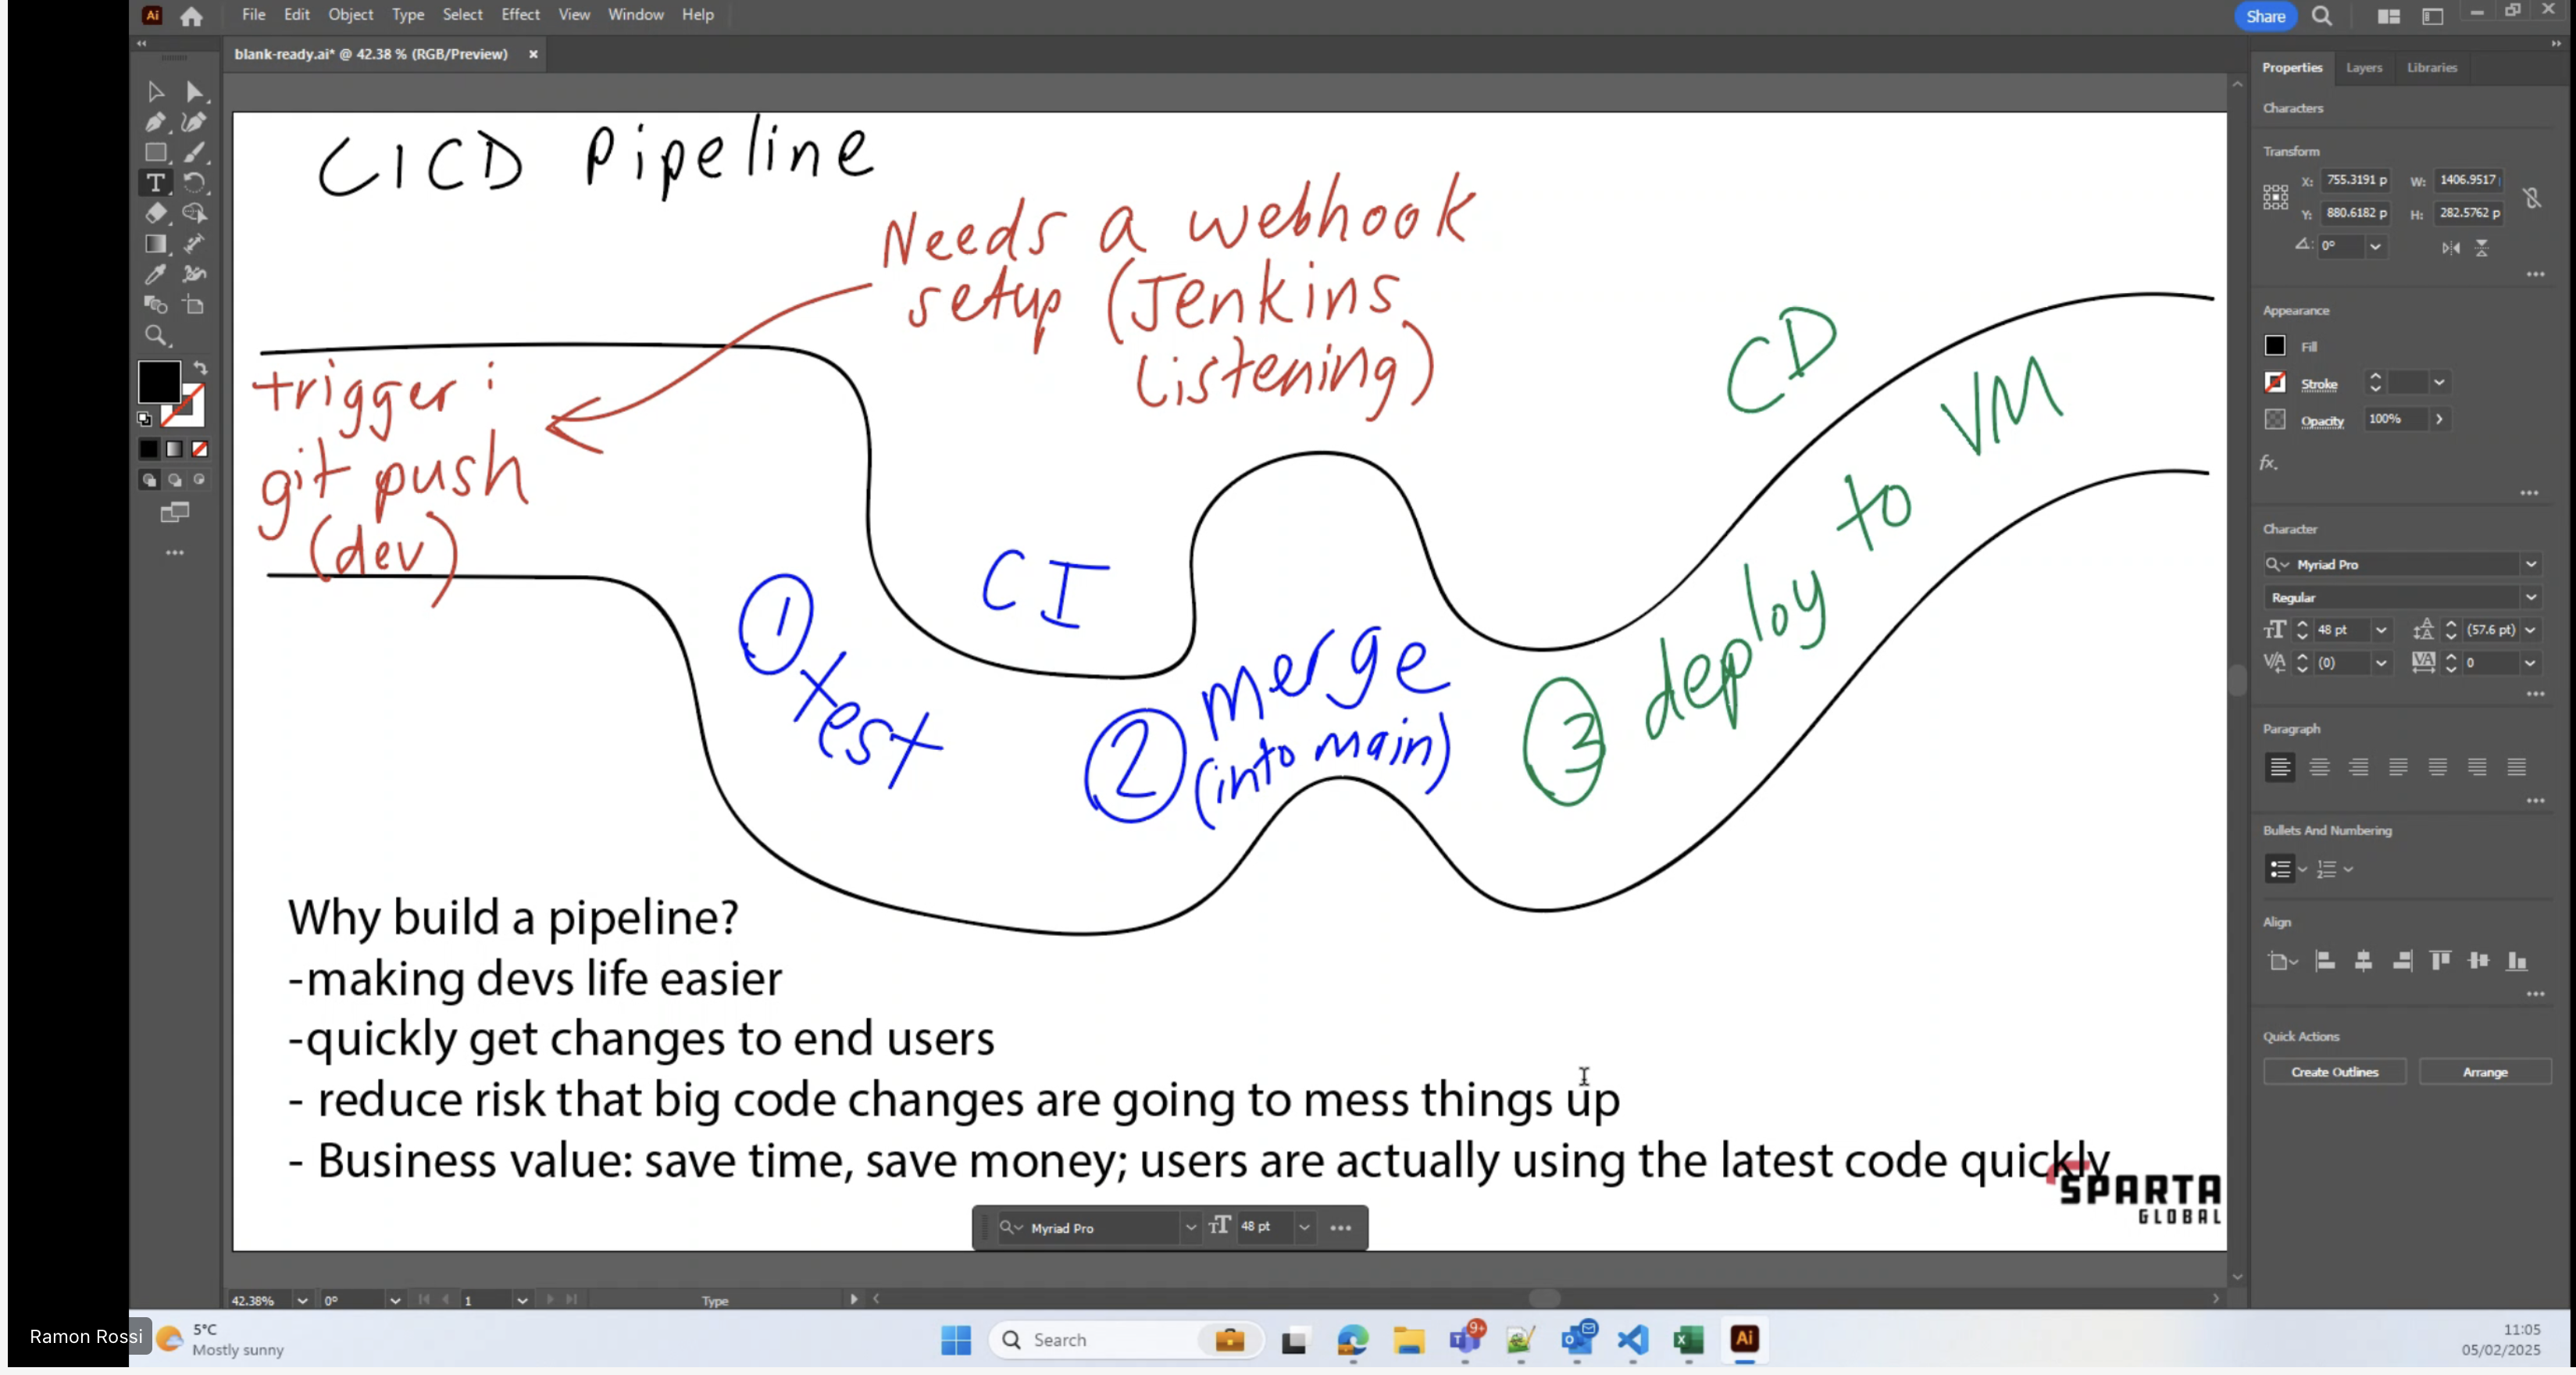 File Edit Object Type Select Effect View Window Help
Share
blank-ready.ai* @ 42.38 % (RGB/Preview)
CICD Pipeline
Needs a webhook
setup (Jenkins
Listening)
trigger:
git push
(dev)
CI
1
test
2
merge
(into main)
CD
3
deploy to VM
Why build a pipeline?
-making devs life easier
-quickly get changes to end users
- reduce risk that big code changes are going to mess things up
- Business value: save time, save money; users are actually using the latest code quickly
SPARTA
GLOBAL
Myriad Pro 48 pt
42.38% 0° 1 Type
Properties Layers Libraries
Characters
Transform
X: 755.3191 p W: 1406.9517
Y: 880.6182 p H: 282.5762 p
0°
Appearance
Fill
Stroke
Opacity 100%
fx.
Character
Myriad Pro
Regular
48 pt (57.6 pt)
(0) 0
Paragraph
Bullets And Numbering
Align
Quick Actions
Create Outlines Arrange
Ramon Rossi
5°C
Mostly sunny
Search
9+
11:05
05/02/2025